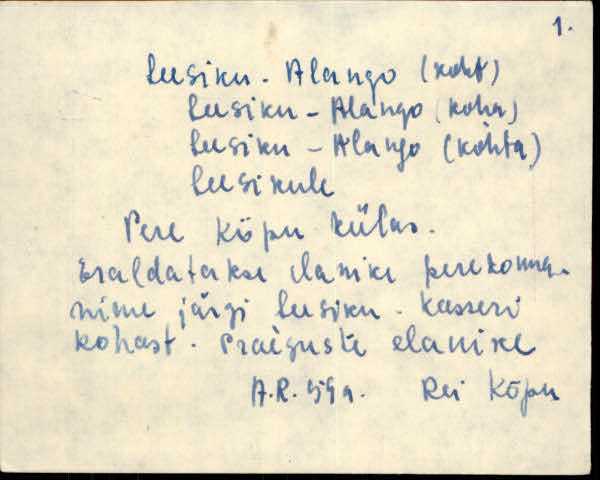 1.
Leesiku - Alango (koht)
Leesiku - Alango (koha)
Leesiku - Alango (kohta)
Leesikule
Pere Kõpu külas.
Eraldatakse elanike perekonna-
nime järgi Leesiku - Kasseri
kohast. Praeguste elanike
A.R. 59a. Rei Kõpu